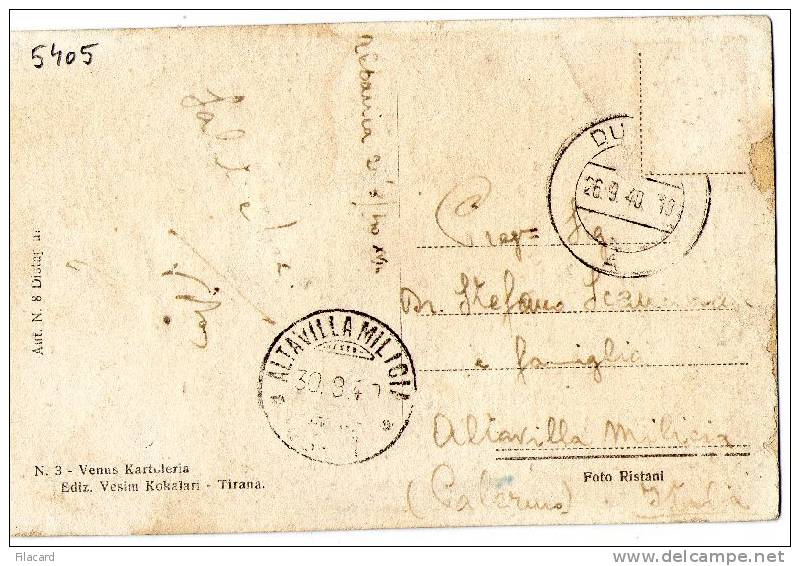 5405
Albania
Saluti
DU
26.9.40.10
A
Preg. Sg.
Dr. Stefano
e famiglia
Altavilla Milicia
(Palermo) Italia
ALTAVILLA MILICIA
30.9.40
Aut. N. 8 Distaç
N. 3 - Venus Kartoleria
Ediz. Vesim Kokalari - Tirana.
Foto Ristani
Filacard
www.delcampe.net